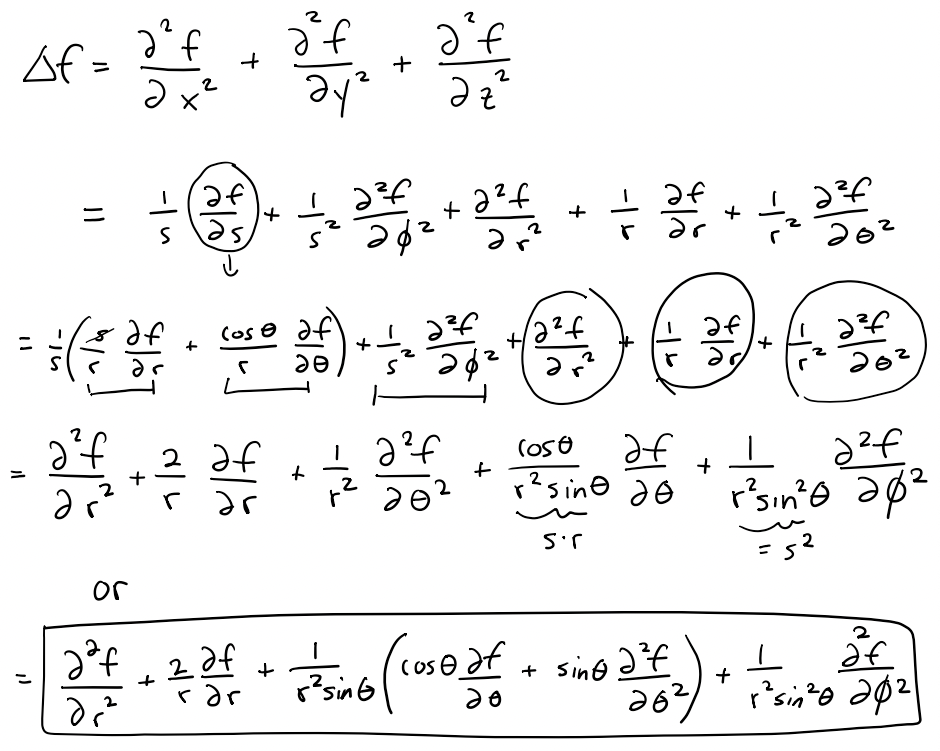 Δf = ∂²f/∂x² + ∂²f/∂y² + ∂²f/∂z²
= 1/s ∂f/∂s + 1/s² ∂²f/∂φ² + ∂²f/∂r² + 1/r ∂f/∂r + 1/r² ∂²f/∂θ²
↓
= 1/s (s/r ∂f/∂r + cosθ/r ∂f/∂θ) + 1/s² ∂²f/∂φ² + ∂²f/∂r² + 1/r ∂f/∂r + 1/r² ∂²f/∂θ²
= ∂²f/∂r² + 2/r ∂f/∂r + 1/r² ∂²f/∂θ² + cosθ/(r² sinθ) ∂f/∂θ + 1/(r² sin²θ) ∂²f/∂φ²
s·r = s²
or
= ∂²f/∂r² + 2/r ∂f/∂r + 1/(r² sinθ) (cosθ ∂f/∂θ + sinθ ∂²f/∂θ²) + 1/(r² sin²θ) ∂²f/∂φ²